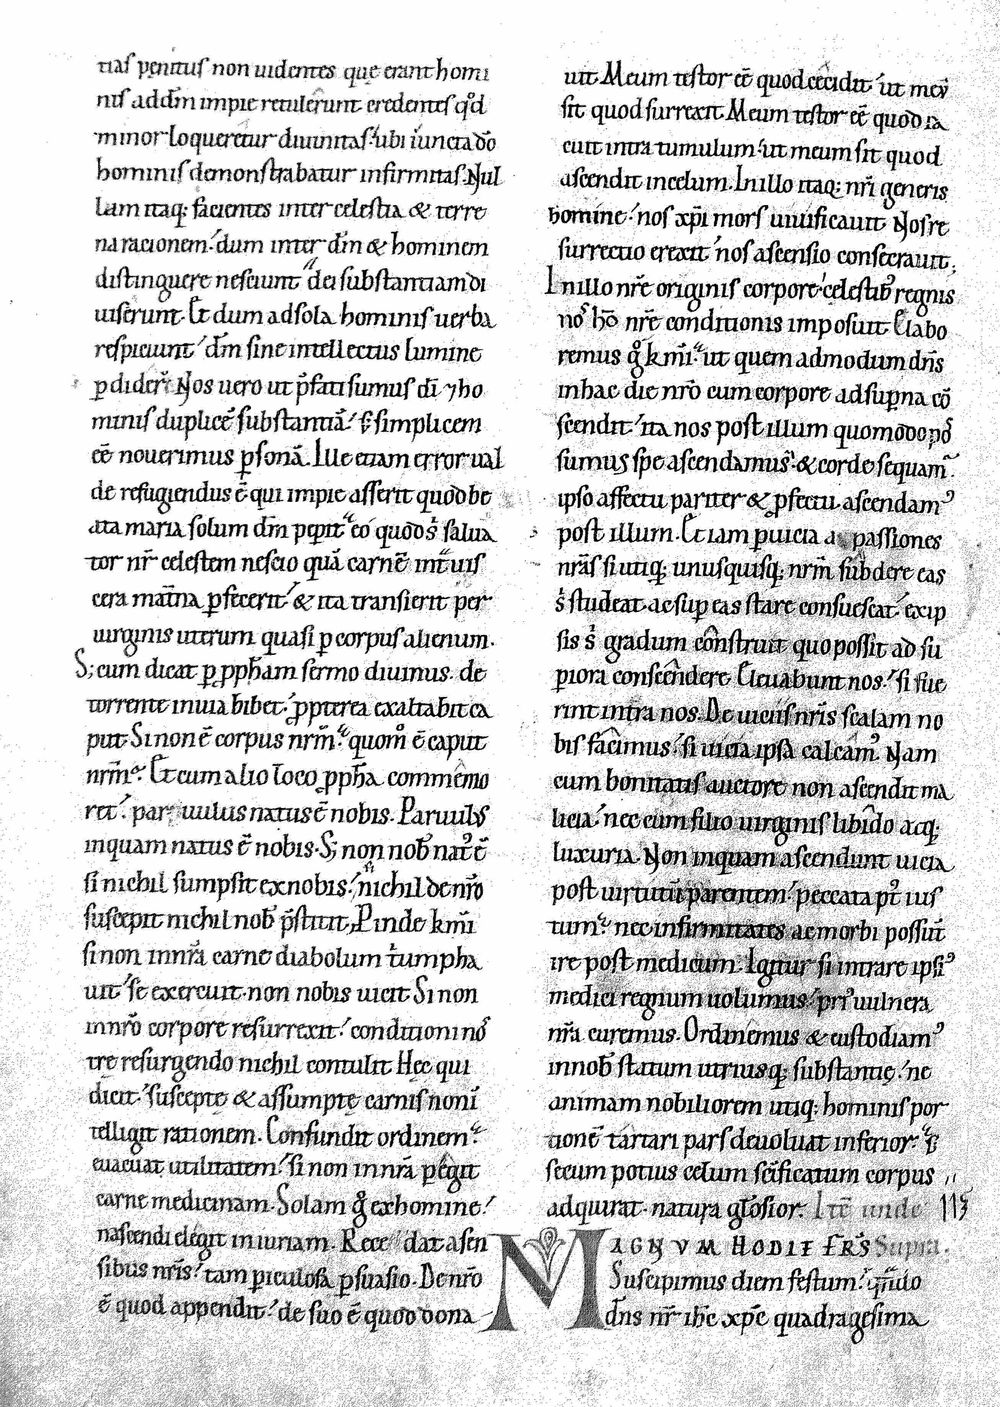 tias penitus non uidentes que erant homi
nis ad dm̄ impie retulerunt credentes qd̄
minor loqueretur diuinitas. ubi iuncta dō
hominis demonstrabatur infirmitas. Nul
lam itaq; facientes inter celestia & terre
na racionem. dum inter dm̄ & hominem
distinguere nesciunt dei substantiam di
uiserunt. Et dum ad sola hominis uerba
respiciunt dm̄ sine intellectus lumine
ꝑdider̄ Nos uero ut p̄fati sumus dī ⁊ ho
minis duplicē substantiā. ſ; simplicem
eē nouerimus ꝑsonā. Ille etiam error ual
de refugiendus ē qui impie asserit quod be
ata maria solum dm̄ peꝑit eo quod s̄ salua
tor nr̄ celestem nescio quā carnē int̄ uis
cera mat̄na ꝑfecerit & ita transierit per
uirginis uterum quasi ꝑ corpus alienum.
S; cum dicat ꝑ ꝓph̄am sermo diuinus. de
torrente in uia bibet. ꝓpterea exaltabit ca
put. Si non ē corpus nrm̄. quomō ē caput
nrm̄. Et cum alio loco ꝓph̄a commemo
ret. paruulus natus ē nobis. Paruulus
inquam natus ē nobis. S; non nob̄ nat᷒ ē
si nichil sumpsit ex nobis. nichil de nr̄o
suscepit nichil nob̄ p̄stitit. Pinde kmī
si non in nr̄a carne diabolum t̄umpha
uit se exercuit. non nobis uicit Si non
in nr̄o corpore resurrexit. conditioni nō
tre resurgendo nichil contulit Hęc qui
dicit. susceptę & assumptę carnis non ī
telligit rationem. Confundit ordinem
euacuat utilitatem. si non in nr̄a ꝑegit
carne medicinam. Solam ḡ ex homine.
nascendi elegit iniuriam. Rece dat a sen
sibus nr̄is. tam ꝑiculosa ꝑsuasio. De nr̄o
ē quod appendit. de suo ē quod dona
uit. Meum testor eē quod cecidit ut meū
sit quod surrexit. Meum testor eē quod ia
cuit intra tumulum. ut meum sit quod
ascendit in celum. In illo itaq; nr̄i generis
homine. nos xp̄i mors uiuificauit Nos re
surrectio erexit nos ascensio consecrauit;
In illo nr̄e originis corpore celestib᷒ regnis
nō hō nr̄e conditionis imposuit Elabo
remus ḡ kmī. ut quem admodum dn̄s
in hac die nr̄o cum corpore ad suꝑna cō
scendit. ita nos post illum quomodo pos
sumus spe ascendamus. & corde sequam᷒
ipso affectu pariter & ꝓfectu. ascendam᷒
post illum. Et iam ꝑ uicia ac passiones
nrās si utiq; unusquisq; nrm̄ subdere eas
s̄ studeat ac suꝑ eas stare consuescat. exip
sis s̄ gradum construit quo possit ad su
ꝑiora conscendere Eleuabunt nos. si fue
rint infra nos. De uiciis nr̄is scalam no
bis facimus. si uicia ipsa calcam᷒. Nam
cum bonitatis auctore non ascendit ma
licia. nec cum filio uirginis libido acq;
luxuria. Non inquam ascendunt uicia
post uirtutū parentem. peccata p᷒t ius
tum. nec infirmitates ac morbi possūt
ire post medicum. Igitur si intrare ipsi᷒
medici regnum uolumus. pri᷒ uulnera
nr̄a curemus. Ordinemus & custodiam᷒
in nob̄ statum utriusq; substantię. ne
animam nobiliorem utiq; hominis por
tionē tartari pars deuoluat inferior. ſ;
secum potius celum sc̄ificatum corpus
adquirat. natura gl̄osior. Itē unde 113
MAGNVM HODIE FRS̄ Supra.
Suscipimus diem festum. quādo
dn̄s nr̄ ih̄c xp̄c quadragesima